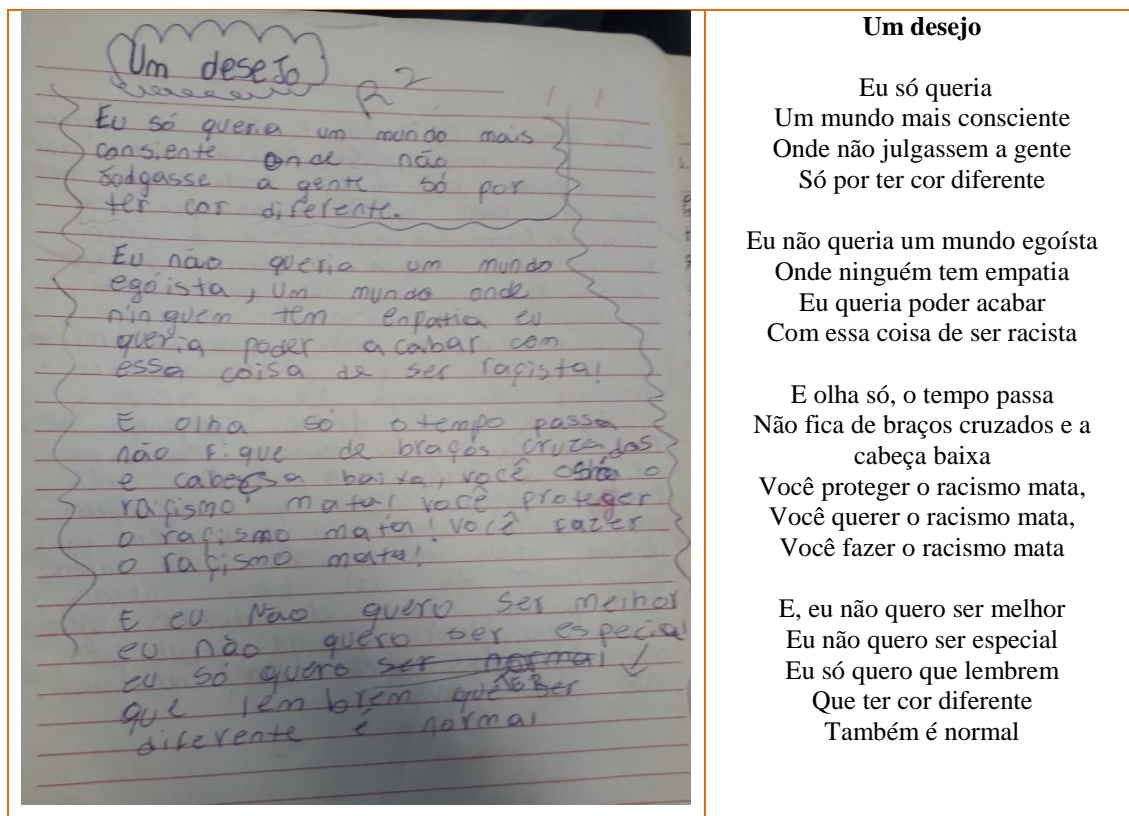 Um desejo
R²
Eu só queria um mundo mais
consiente onde não
Jodgasse a gente só por
ter cor diferente.
Eu não queria um mundo
egoista, um mundo onde
ninguem tem enpatia eu
queria poder acabar com
essa coisa de ser raçista!
E olha só o tempo passa
não fique de braços cruzados
e cabessa baixa, você o
raçismo mata! você proteger
o raçismo mata! você fazer
o raçismo mata!
E eu Não quero ser melhor
eu não quero ser especial
eu só quero ser normal
que lembrem que ser
diferente é normal
Um desejo
Eu só queria
Um mundo mais consciente
Onde não julgassem a gente
Só por ter cor diferente
Eu não queria um mundo egoísta
Onde ninguém tem empatia
Eu queria poder acabar
Com essa coisa de ser racista
E olha só, o tempo passa
Não fica de braços cruzados e a
cabeça baixa
Você proteger o racismo mata,
Você querer o racismo mata,
Você fazer o racismo mata
E, eu não quero ser melhor
Eu não quero ser especial
Eu só quero que lembrem
Que ter cor diferente
Também é normal